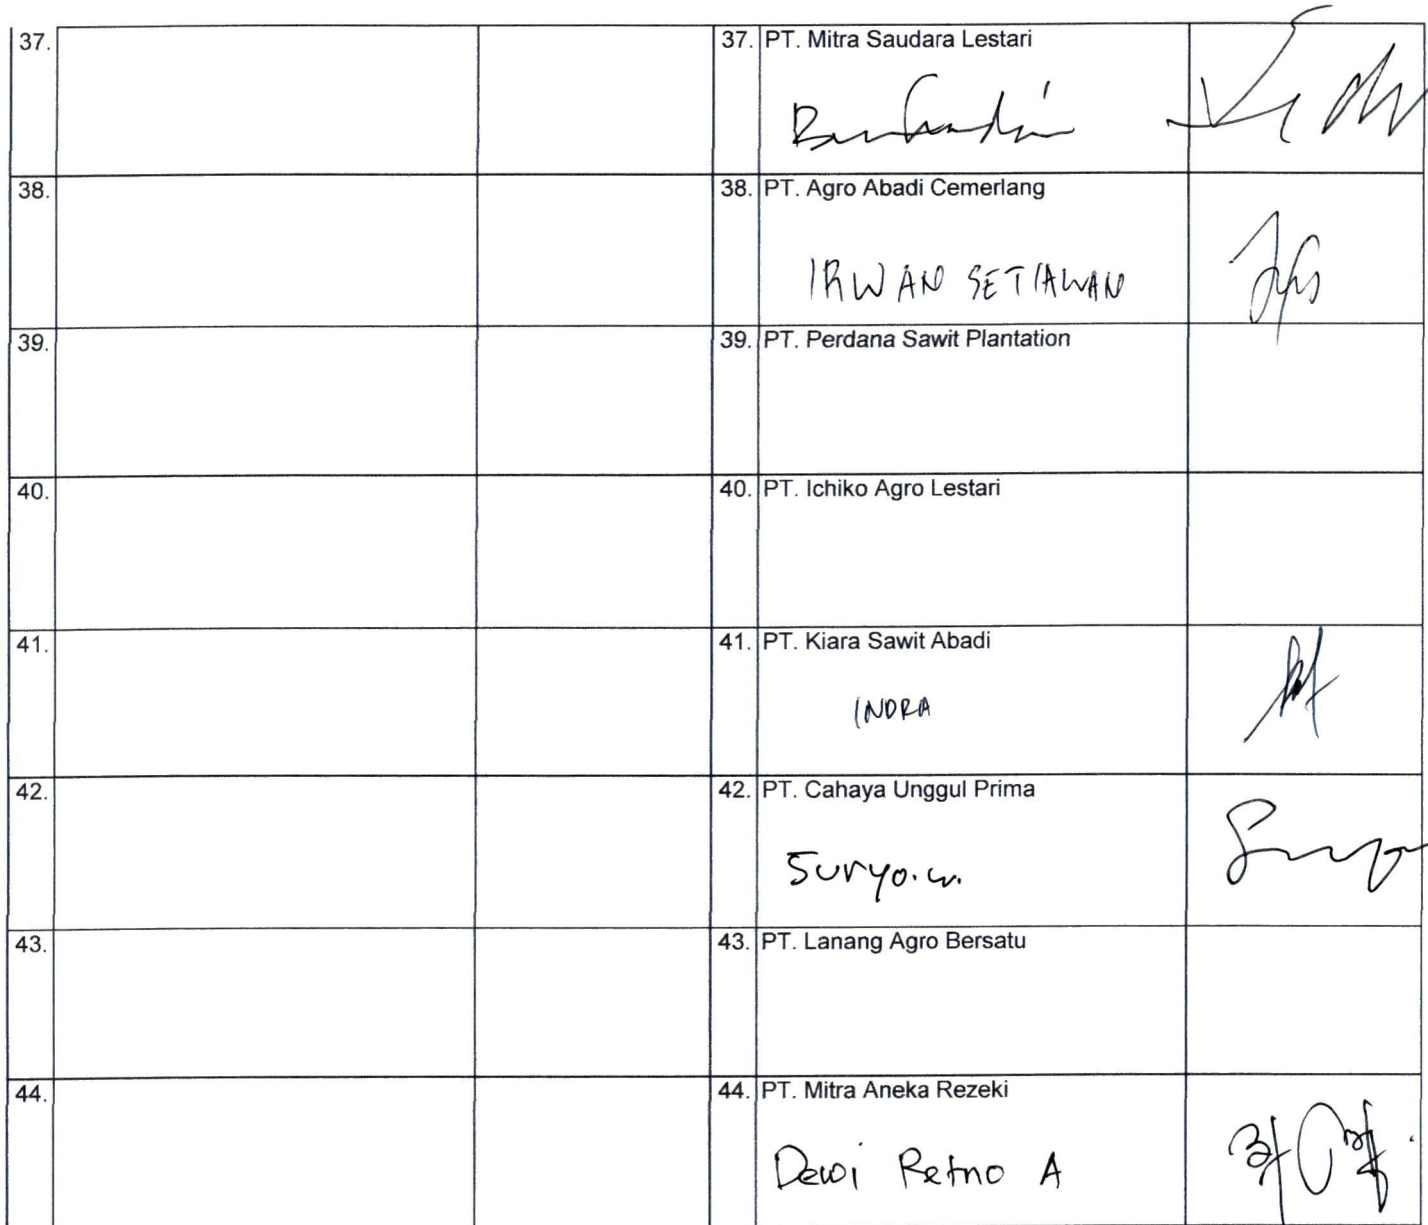 37. 37. PT. Mitra Saudara Lestari
38. 38. PT. Agro Abadi Cemerlang
IRWAN SETIAWAN
39. 39. PT. Perdana Sawit Plantation
40. 40. PT. Ichiko Agro Lestari
41. 41. PT. Kiara Sawit Abadi
INDRA
42. 42. PT. Cahaya Unggul Prima
Suryo.w.
43. 43. PT. Lanang Agro Bersatu
44. 44. PT. Mitra Aneka Rezeki
Dewi Retno A